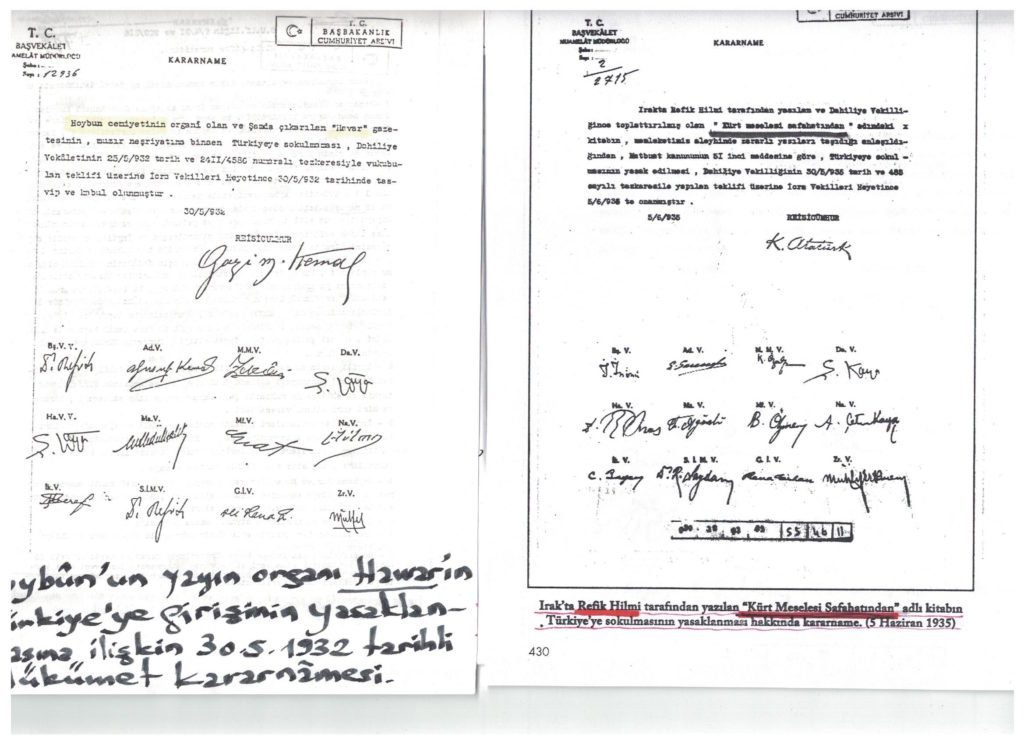 T. C.
BAŞVEKÂLET
AMELÂT MÜDÜRLÜĞÜ
Sayı : 12936
T. C.
BAŞBAKANLIK
CUMHURİYET ARŞİVİ
KARARNAME
Hoybun cemiyetinin organı olan ve Şamda çıkarılan "Havar" gaze-
tesinin , muzır neşriyatına binaen Türkiyeye sokulmaması , Dahiliye
Vekâletinin 25/5/932 tarih ve 24II/4580 numaralı tezkeresiyle vukubu-
lan teklifi üzerine İcra Vekilleri Heyetince 30/5/932 tarihinde tas-
vip ve kabul olunmuştur .
30/5/932
REİSİCUMHUR
Gazi M. Kemal
Bş.V. V.
Ad.V.
M.M.V.
Da.V.
Dr. Refik
Ş. Kaya
Ha.V. V.
Ma.V.
Mf.V.
Na.V.
Ş. Kaya
Hilmi
İk.V.
S.İ.M.V.
G.İ.V.
Zr.V.
Dr. Refik
Ali Rana
ybûn'un yayın organı Hawar'ın
ürkiye'ye girişinin yasaklan-
asına ilişkin 30.5.1932 tarihli
ükümet kararnâmesi.
CUMHURİYET ARŞİVİ
T. C.
BAŞVEKÂLET
MUAMELÂT MÜDÜRLÜĞÜ
2
2715
KARARNAME
Irakta Refik Hilmi tarafından yazılan ve Dahiliye Vekilli-
ğince toplattırılmış olan " Kürt meselesi safahatından" adındaki x
kitabın , memleketimiz aleyhinde zararlı yazıları taşıdığı anlaşıldı-
ğından , Matbuat kanununun 5I inci maddesine göre , Türkiyeye sokul -
masının yasak edilmesi , Dahiliye Vekilliğinin 30/5/935 tarih ve 488
sayılı tezkeresile yapılan teklifi üzerine İcra Vekilleri Heyetince
5/6/935 te onanmıştır .
5/6/935
REİSİCÜMHUR
K. Atatürk
Bş. V.
Ad. V.
M. M. V.
Da. V.
İ. İnönü
Ş. Saracoğlu
K. Özalp
Ş. Kaya
Ha. V.
Ma. V.
Mf. V.
Na. V.
A. Çetinkaya
İk. V.
S. İ. M. V.
G. İ. V.
Zr. V.
C. Bayar
Dr. R. Saydam
Rana Tarhan
55 46 11
Irak'ta Refik Hilmi tarafından yazılan "Kürt Meselesi Safahatından" adlı kitabın
Türkiye'ye sokulmasının yasaklanması hakkında kararname. (5 Haziran 1935)
430